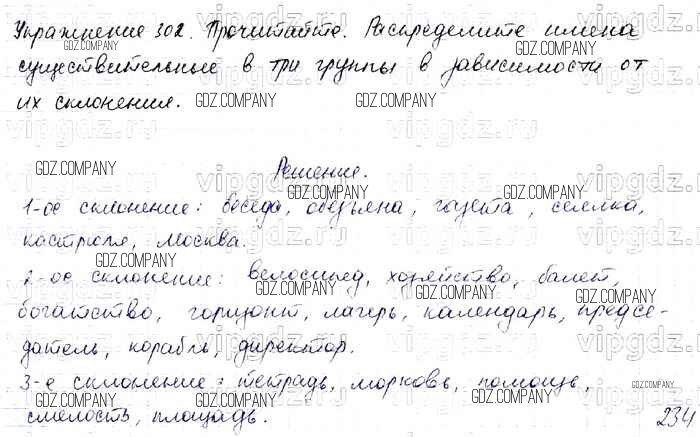 Упражнение 302. Прочитайте. Распределите имена
существительные в три группы в зависимости от
их склонения.
Решение.
1-ое склонение: беседа, обезьяна, газета, семья,
кастрюля, Москва.
2-ое склонение: велосипед, хозяйство, балет,
богатство, горизонт, лагерь, календарь, предсе-
датель, корабль, директор.
3-е склонение: тетрадь, морковь, помощь,
смелость, площадь.
234
GDZ.COMPANY
vipgdz.ru